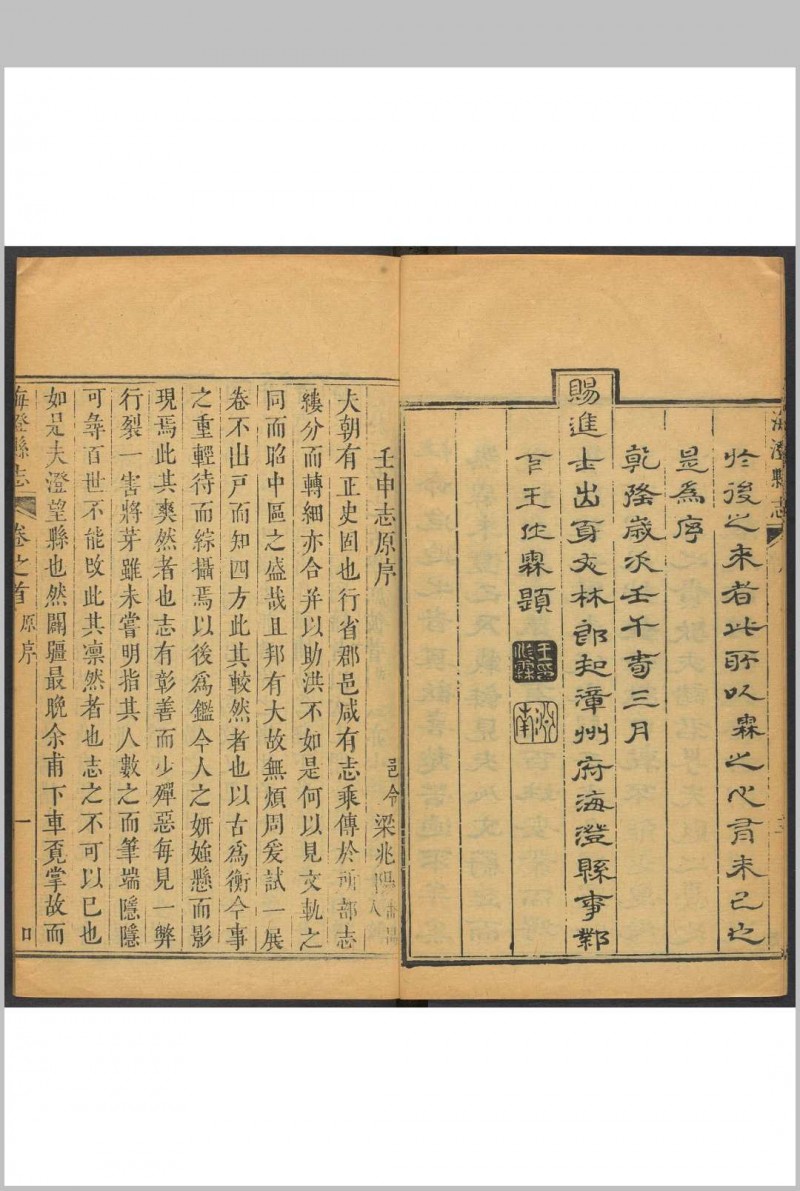 海澄縣志
於後之来者此所以霖之心有未已也
是爲序
乾隆歲次壬午春三月
賜進士出身文林郎知漳州府海澄縣事鄴
下王作霖題
王印作霖
壬申志原序
邑令梁兆陽人
大朝有正史固也行省郡邑咸有志乘傳於所部志
縷分而轉細亦合并以助洪不如是何以見文軌之
同而昭中區之盛哉且邦有大故無煩周爰試一展
卷不出戸而知四方此其較然者也以古爲衡今事
之重輕待而綜攝焉以後爲鑑今人之妍媸懸而影
現焉此其爽然者也志有彰善而少殫惡每見一弊
行裂一害將芽雖未嘗明指其人數之而筆端隱隱
可尋百世不能改此其凛然者也志之不可以已也
如是夫澄望縣也然闢疆最晩余甫下車覔掌故而
海澄縣志 卷之首 原序 一